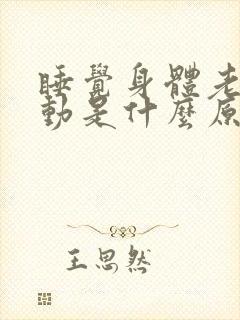 睡覺身體老
動是什麼原
王思然